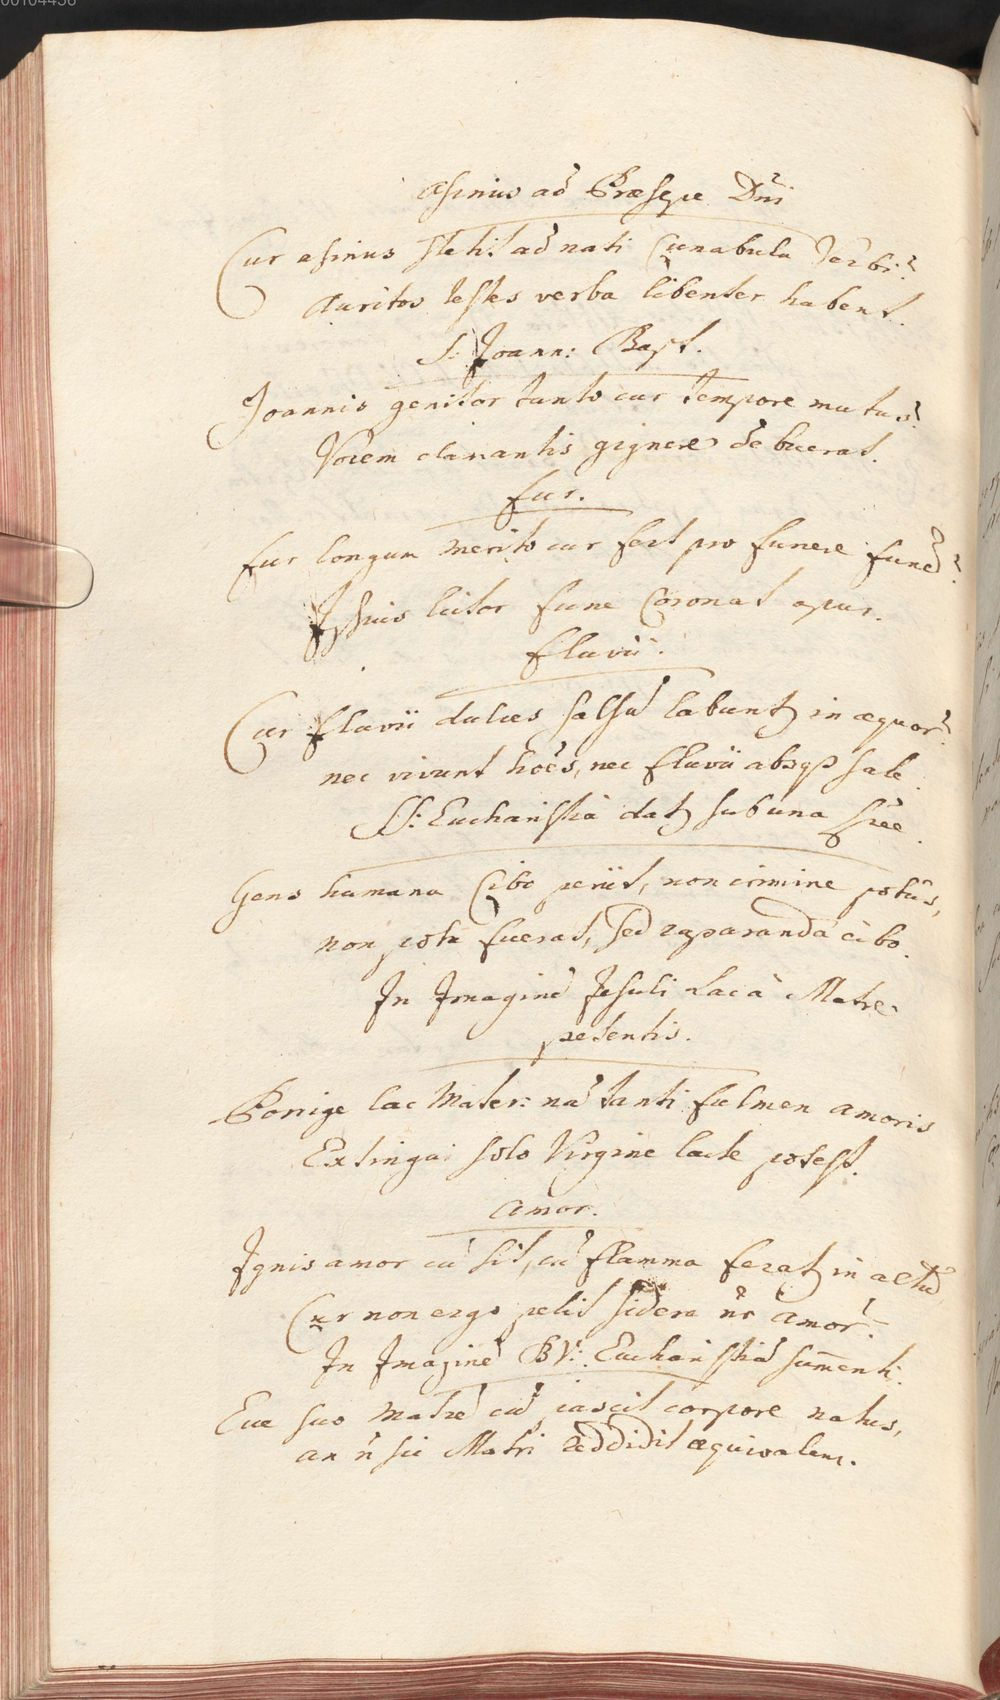 00104436
Asinus ad̃ Præsepe Dñi
Cur asinus stetit ad nati Cunabula Verbi?
Auritos testes verba libenter habent.
S. Joann: Bapt.
Joannis genitor tanto cur tempore mutus?
Vocem clamantis gignere debuerat.
fur.
fur longum merito cur fert pro funere funẽ?
Ipsius lictor fune Coronat opus.
fluvii.
Cur fluvii dulces salsũ labunt in æquor?
nec vivunt hoẽs, nec fluvii absq sale.
SS: Eucharistia dat sub una spẽe.
Gens humana Cibo periit, non crimine potus,
non potu fuerat, sed reparanda cibo.
In Imaginẽ Jesuli Lac à Matre
petentis.
Porrige lac Mater: nã tanti fulmen amoris
Extingui solo Virgine lacte potest.
Amor.
Ignis amor cũ sit, cũ flamma ferat in altũ,
Cur non ergo petit sidera nr̃ amor?
In Imaginẽ BV: Eucharistiã sumenti.
Ecce suo Matrẽ cũ pascit corpore natus,
an ñ sic Matri reddidit æquivalens.